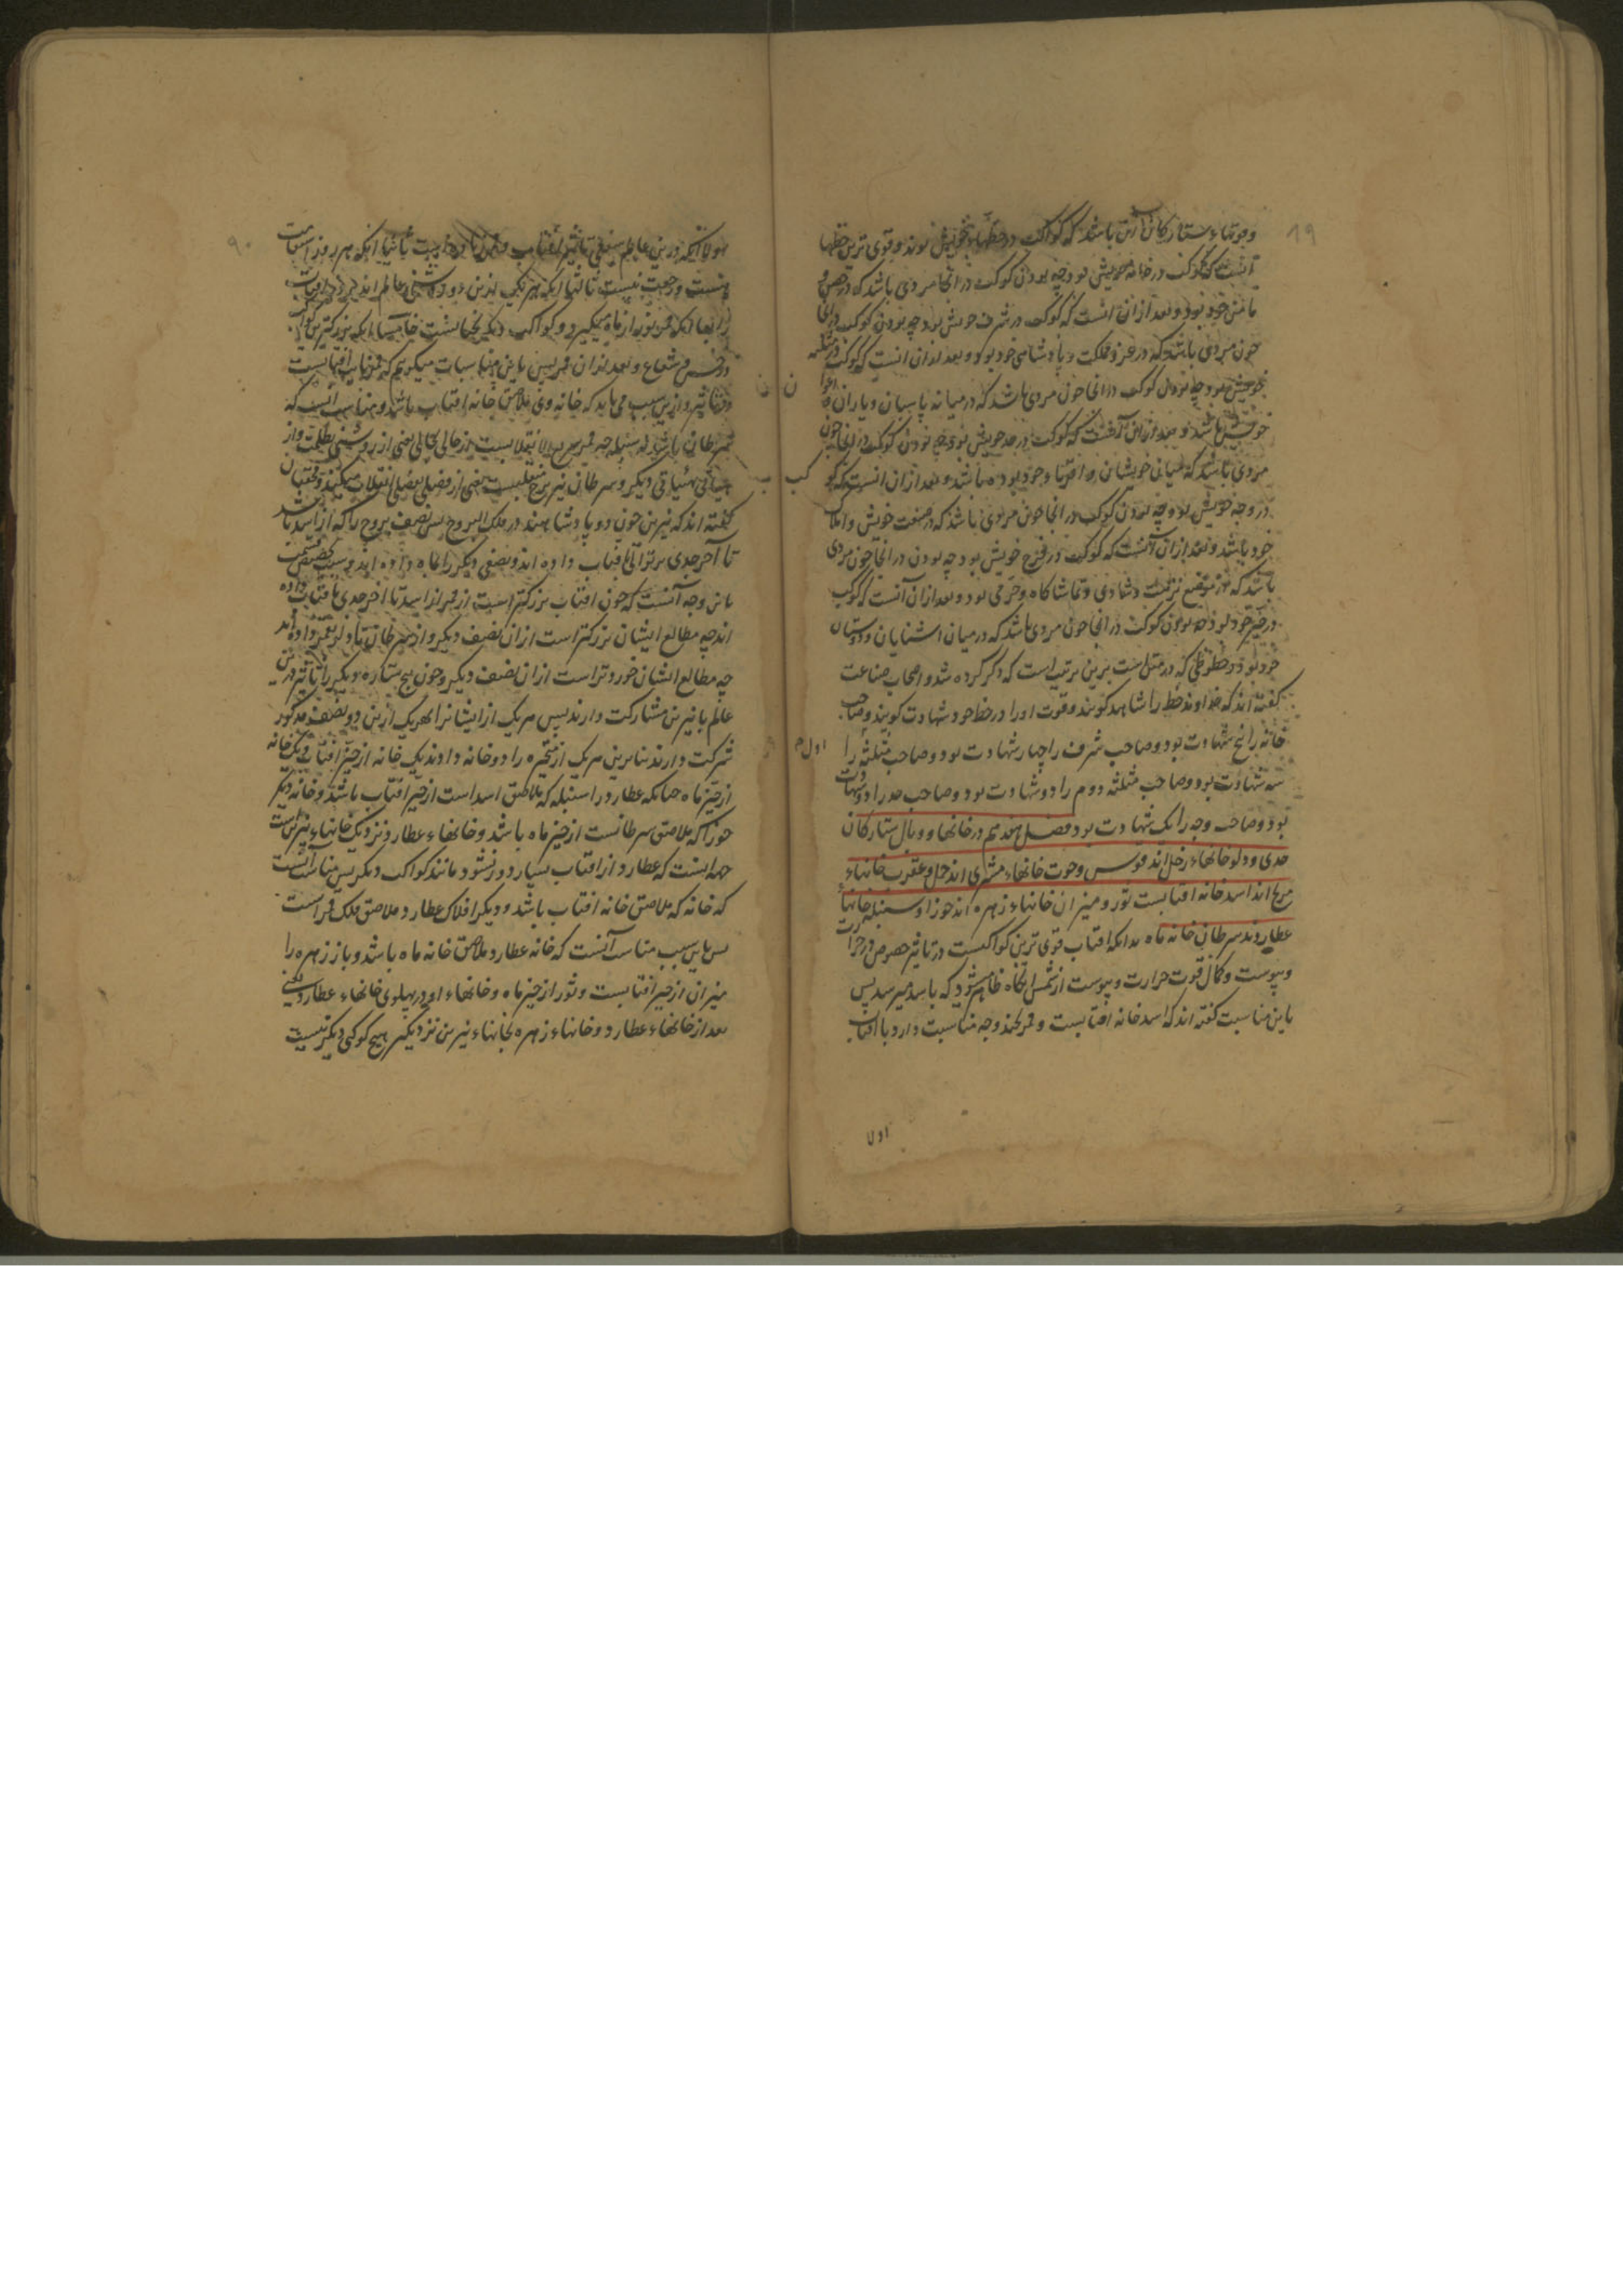 ۱۹
وقوتهاء ستارکان آن باشد که کواکب در حظهاء خویش بوند وقوی ترین حظها
آنست که کوکب در خانه خویش بود چه بودن کوکب در آنجا مردی باشد که در حصن و
مامن خود بود وبعد از آن آنست که کوکب در شرف خویش بود چه بودن کوکب در آنجا
چون مردی باشد که در عز ومملکت وپادشاهی خود بود وبعد از آن آنست که کوکب در مثلثه
خویش بود چه بودن کوکب در آنجا چون مردی باشد که در میانه پاسبان ویاران و اعوان
خویش باشد وبعد از آن آنست که کوکب در حد خویش بود چه بودن کوکب در آنجا چون
مردی باشد که میان خویشان و اقربا وخود بوده باشد وبعد از آن آنست که کوکب
در وجه خویش بود چه بودن کوکب در آنجا چون مردی باشد که در صنعت خویش واملاک
خود باشد وبعد از آن آنست که کوکب در فرح خویش بود چه بودن در آنجا چون مردی
باشد که در موضع نزهت وشادی وتماشاکاه وخرمی بود وبعد از آن آنست که کوکب
در حیز خود بود چه بودن کوکب در آنجا چون مردی باشد که در میان آشنایان ودوستان
خود بود وحظوظی که در مثل است برین ترتیب است که ذکر کرده شد واصحاب صناعت
کفته اند که خداوند حظ را شاهد کویند وقوت او را در حظ خود شهادت کویند وصاحب
خانه را پنج شهادت بود وصاحب شرف را چهار شهادت بود وصاحب مثلثه را
اول
سه شهادت بود وصاحب مثلثه دوم را دو شهادت بود وصاحب حد را دو شهادت
بود وصاحب وجه را یک شهادت بود فصل هفدهم در خانها ووبال ستارکان
جدی ودلو خانهاء زحل اند قوس وحوت خانهاء مشتری اند حمل وعقرب خانهاء
مریخ اند اسد خانه آفتابست ثور ومیزان خانهاء زهره اند جوزا وسنبله خانهاء
عطاردند سرطان خانه ماه بدانکه آفتاب قوی ترین کواکبست در تاثیر خصوص در حرارت
ویبوست وکمال قوت حرارت ویبوست از شمس آنکاه ظاهر میشود که باسد میرسد پس
باین مناسبت کفته اند که اسد خانه آفتابست وقمر بچند وجه مناسبت دارد با آفتاب
اولا
۹۰
اولا آنکه درین عالم سفلی تاثیر آفتاب وقمر ثانیا آنکه هر روز استقامت
هست ورجعت نیست ثالثا آنکه هر یک ازین دو روشنی عالم اند
رابعا آنکه قمر نور از ماه میکیرد وکواکب دیکر نخپانست خامسا آنکه بزرکترین کواکب
در حس وشعاع وبعد از آن قمر پس باین مناسبات میکوییم که قمر نایب آفتابست
در تاثیر وازین سبب می باید که خانه وی ملاصق خانه آفتاب باشد ومناسب آنست که
سرطان باشد نه سنبله چه قمر سریع الانتقالست از حالی بحالی یعنی از روشنی بظلمت واز
هیأتی بهیأتی دیکر وسرطان نیز برج منقلبست یعنی از فصلی بفصلی انقلاب میکند
کفته اند که نیرین چون دو پادشاهند در فلک البروج پس نصف بروج را که از اسد باشد
تا آخر جدی بر توالی بآفتاب داده اند ونصفی دیکر را بماه داده اند وسبب تخصیص قسمت
باین وجه آنست که چون آفتاب بزرکتر است از قمر از اسد تا آخر جدی بآفتاب داده
اند چه مطالع ایشان بزرکتر است از آن نصف دیکر واز سرطان تا دلو بقمر داده اند
چه مطالع ایشان خوردتر است از آن نصف دیکر وچون پنج ستاره دیکر را تاثیر درین
عالم با نیرین مشارکت دارند پس هر یک از ایشان را بهر یک ازین دو نصف مذکور
شرکت دارند بنابرین هر یک از متحیره را دو خانه دادند یک خانه از حیز آفتاب ویک خانه
از حیز ماه چنانکه عطارد را سنبله که ملاصق اسد است از حیز آفتاب باشد وخانه دیکر
جوزا که ملاصق سرطانست از حیز ماه باشد وخانهاء عطارد نزدیک خانهاء نیرین است
جهت آنست که عطارد از آفتاب بسیار دور نشود مانند کواکب دیکر پس مناسب آنست
که خانه که ملاصق خانه آفتاب باشد ودیکر افلاک عطارد ملاصق فلک قمر است
پس باین سبب مناسب آنست که خانه عطارد ملاصق خانه ماه باشد وباز زهره را
میزان از حیز آفتابست وثور از حیز ماه وخانهاء او در پهلوی خانهاء عطارد یعنی
بعد از خانهاء عطارد وخانهاء زهره بخانهاء نیرین نزدیکتر هیچ کوکبی دیکر نیست